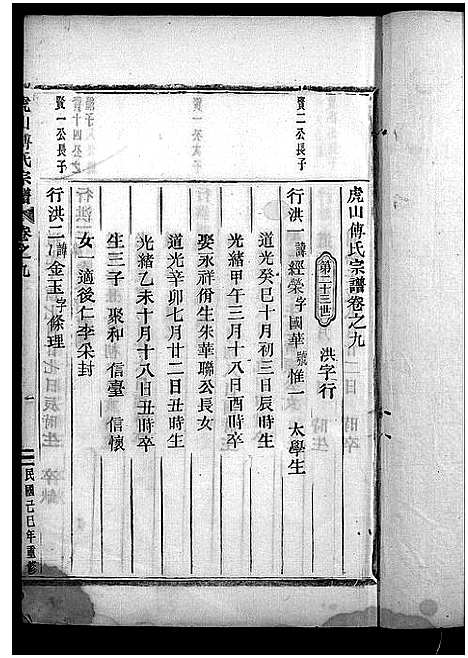 虎山傅氏宗譜卷之九
第二十三世 洪字行
賢二公長子
行洪一諱經榮字國華號惟一 太學生
道光癸巳十月初三日辰時生
光緒甲午三月十八日酉時卒
娶永祥佾生朱華聯公長女
道光辛卯七月廿二日丑時生
光緒乙未十月十八日丑時卒
生三子 聚和 信臺 信懷
女一適後仁李采封
賢一公長子
行洪二諱金玉字條理
虎山傅氏宗譜 卷之九
一
民國己巳年重修